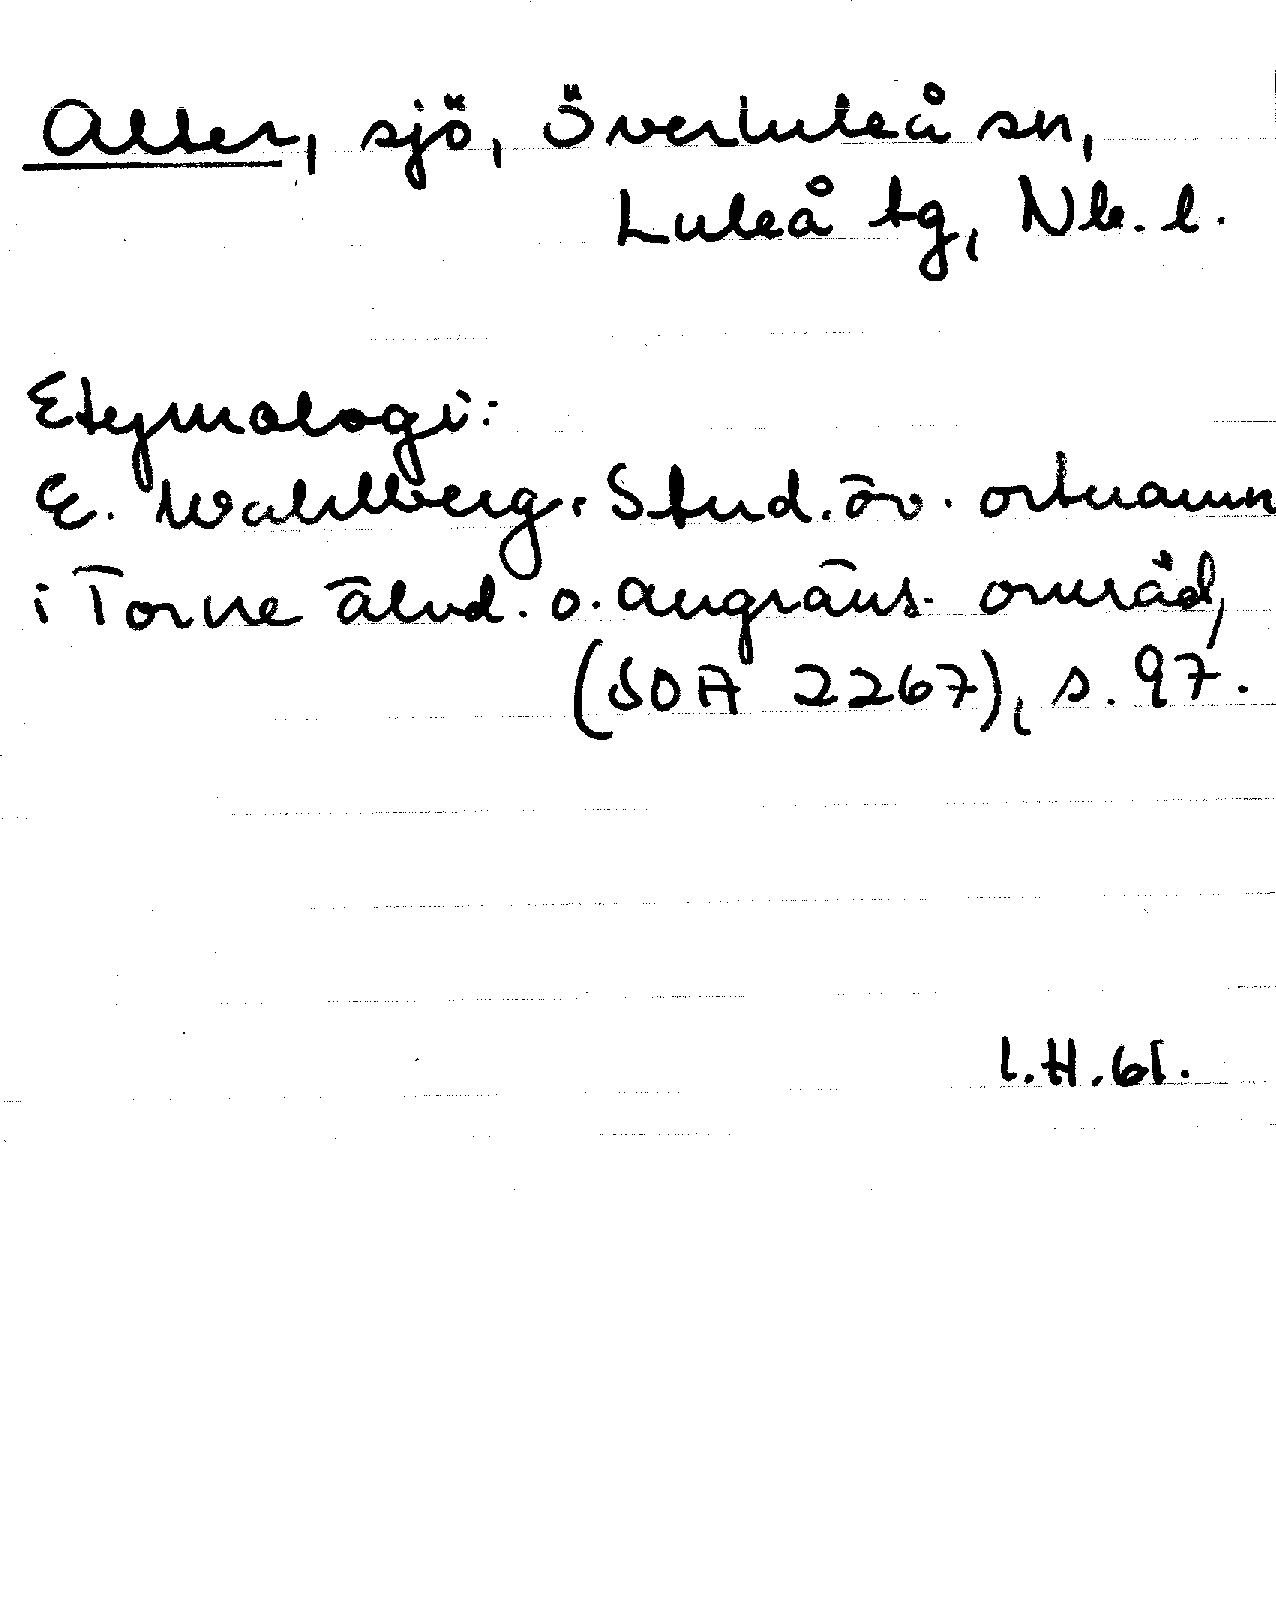 Alter, sjö, Överluleå sn,
Luleå tg, Nb. l.
Etymologi:
E. Wahlberg. Stud. öv. ortnamn
i Torne älvd. o. angräns. område,
(SOA 2267), s. 97.
I.H.61.